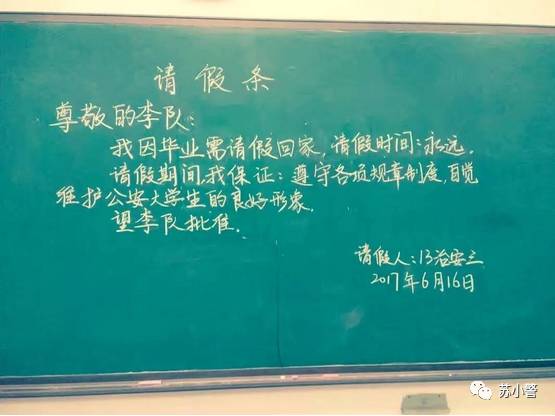 请假条
尊敬的李队:
我因毕业需请假回家,请假时间:永远.
请假期间,我保证:遵守各项规章制度,自觉
维护公安大学生的良好形象.
望李队批准.
请假人:13治安三
2017年6月16日
苏小警